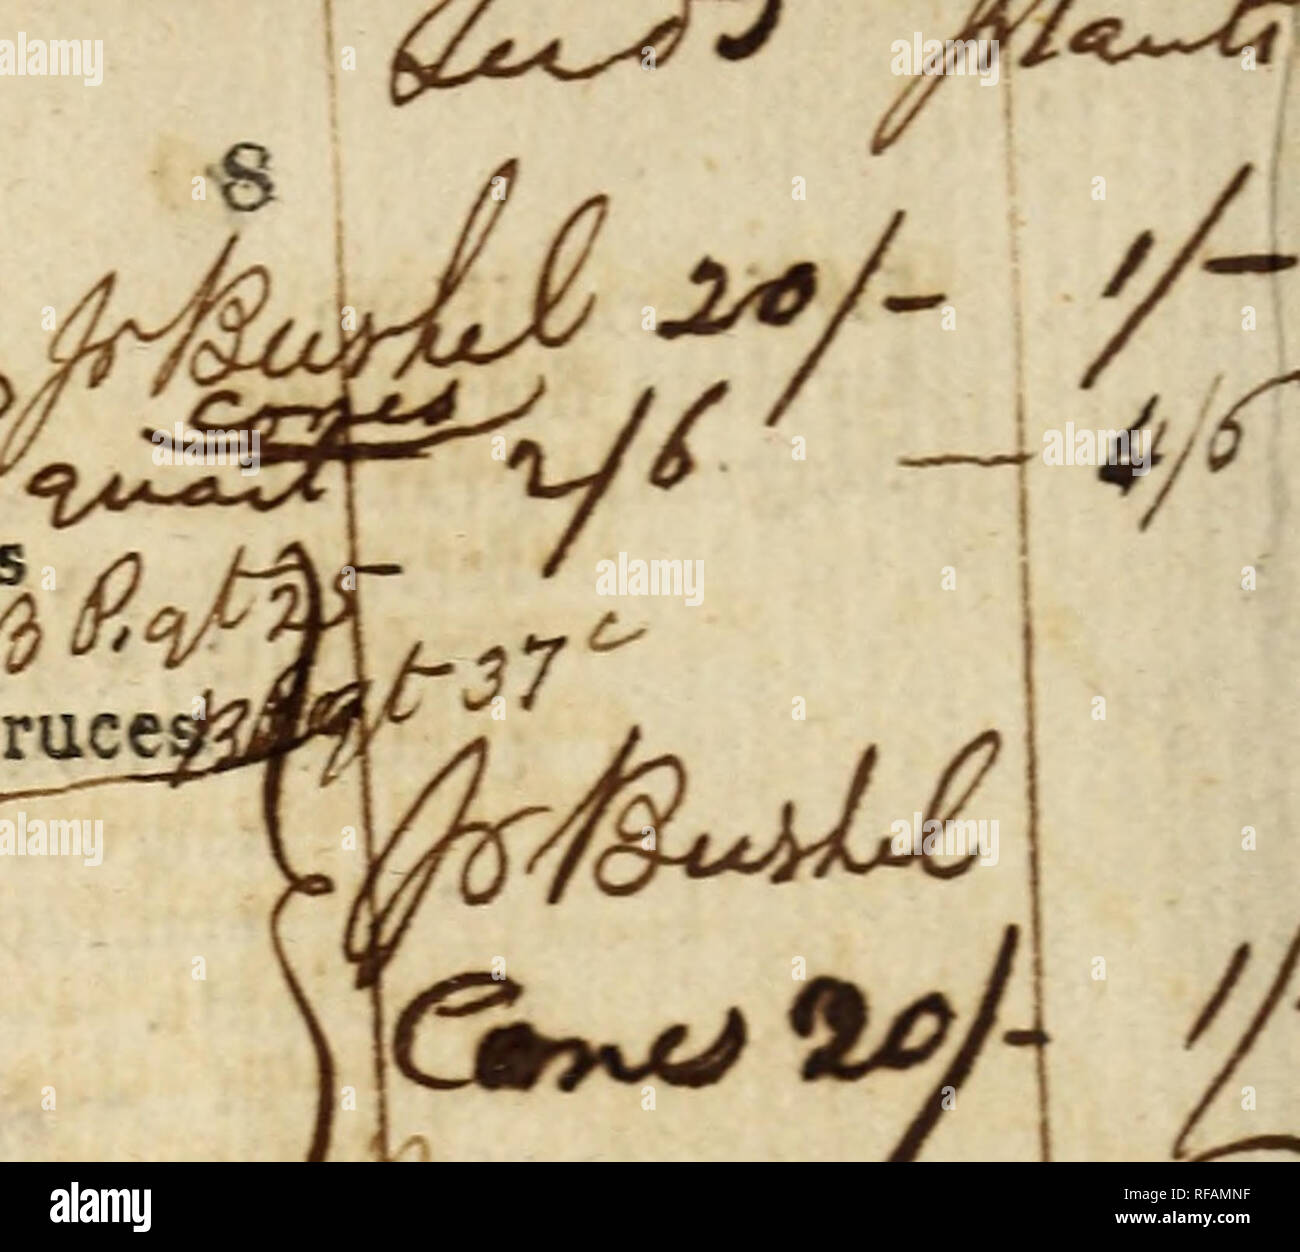 Seeds Plants
s
pr Bushel 20/- 1/-
cones
quart 2/6 — 4/6
s
B P. qt 25
qt 37 c
ruces
pr Bushel
Cones 20/- 1/-
alamy
Image ID: RFAMNF
www.alamy.com